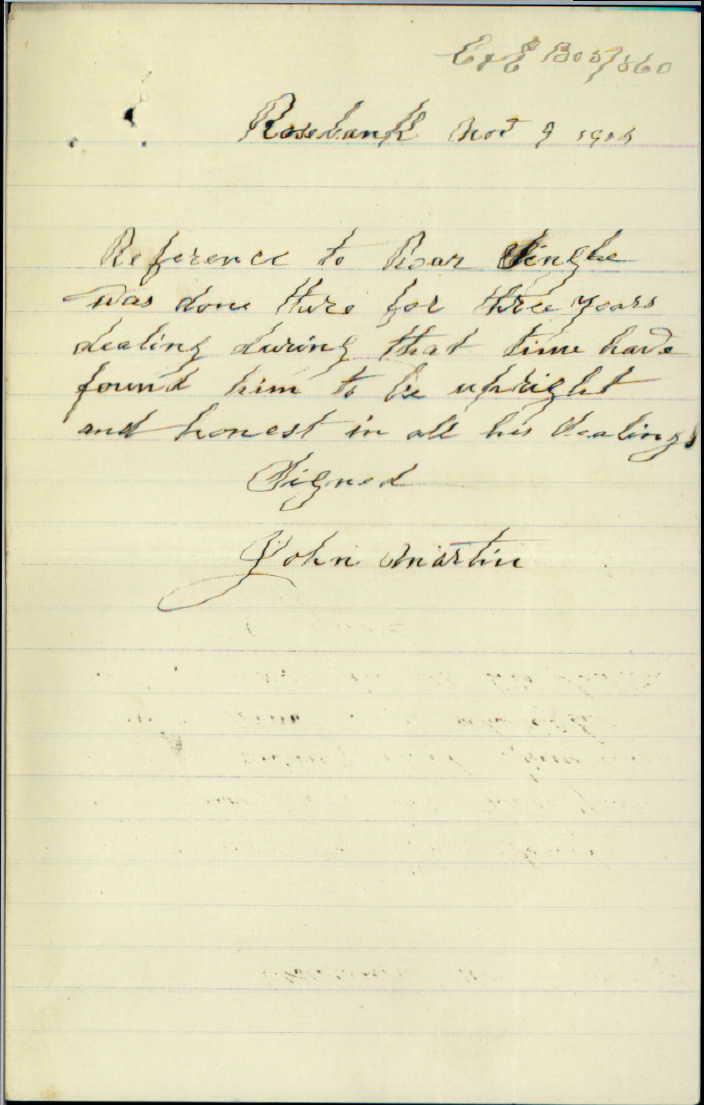 E & E Box / 560
Rosebank Nov 9 190
Reference to Bsar Singhe
was done there for three years
dealing during that time have
found him to be upright
and honest in all his dealings
Signed
John Martin